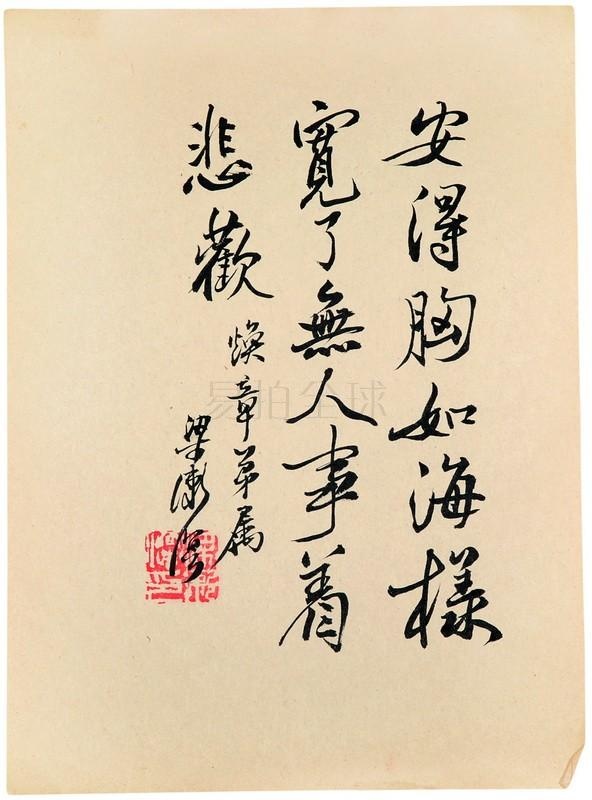 安得胸如海樣
寬了無人事着
悲歡
煥章弟屬
梁漱溟
易拍全球